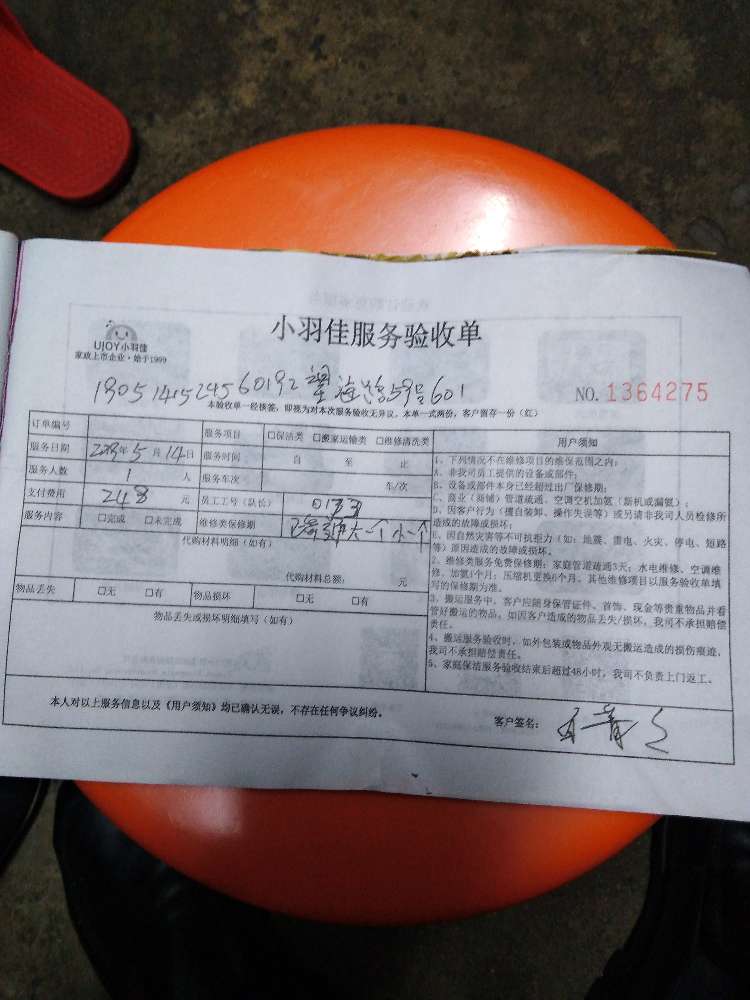 小羽佳服务验收单
UJOY小羽佳
家政上市企业·始于1999
NO. 1364275
本验收单一经核签，即视为对本次服务验收无异议。本单一式两份，客户留存一份（红）
订单编号
服务项目 □保洁类 □搬家运输类 □维修清洗类
服务日期 年 5 月 14 日 服务时间 自 至 止
服务人数 1 人 服务车次 车/次
支付费用 248 元 员工工号（队长）
服务内容 □完成 □未完成 维修类保修期
代购材料明细（如有）
代购材料总额： 元
物品丢失 □无 □有 物品损坏 □无 □有
物品丢失或损坏明细填写（如有）
用户须知
1、下列情况不在维修项目的维保范围之内：
A、非我司员工提供的设备或部件；
B、设备或部件本身已经超过出厂保修期；
C、商业（商铺）管道疏通、空调空机加氨（新机或漏氨）；
D、因客户行为（擅自装卸、操作失误等）或另请非我司人员检修所
造成的故障或损坏；
E、因自然灾害等不可抗力（如：地震、雷电、火灾、停电、短路
等）原因造成的故障或损坏。
2、维修类服务免费保修期：家庭管道疏通3天；水电维修、空调维
修、加氨1个月；压缩机更换6个月。其他维修项目以服务验收单填
写的保修期为准。
3、搬运服务中，客户应随身保管证件、首饰、现金等贵重物品并看
管好搬运的物品。如因客户造成的物品丢失/损坏，我司不承担赔偿
责任。
4、搬运服务验收时，如外包装或物品外观无搬运造成的损伤痕迹，
我司不承担赔偿责任。
5、家庭保洁服务验收结束后超过48小时，我司不负责上门返工。
本人对以上服务信息以及《用户须知》均已确认无误，不存在任何争议纠纷。
客户签名：